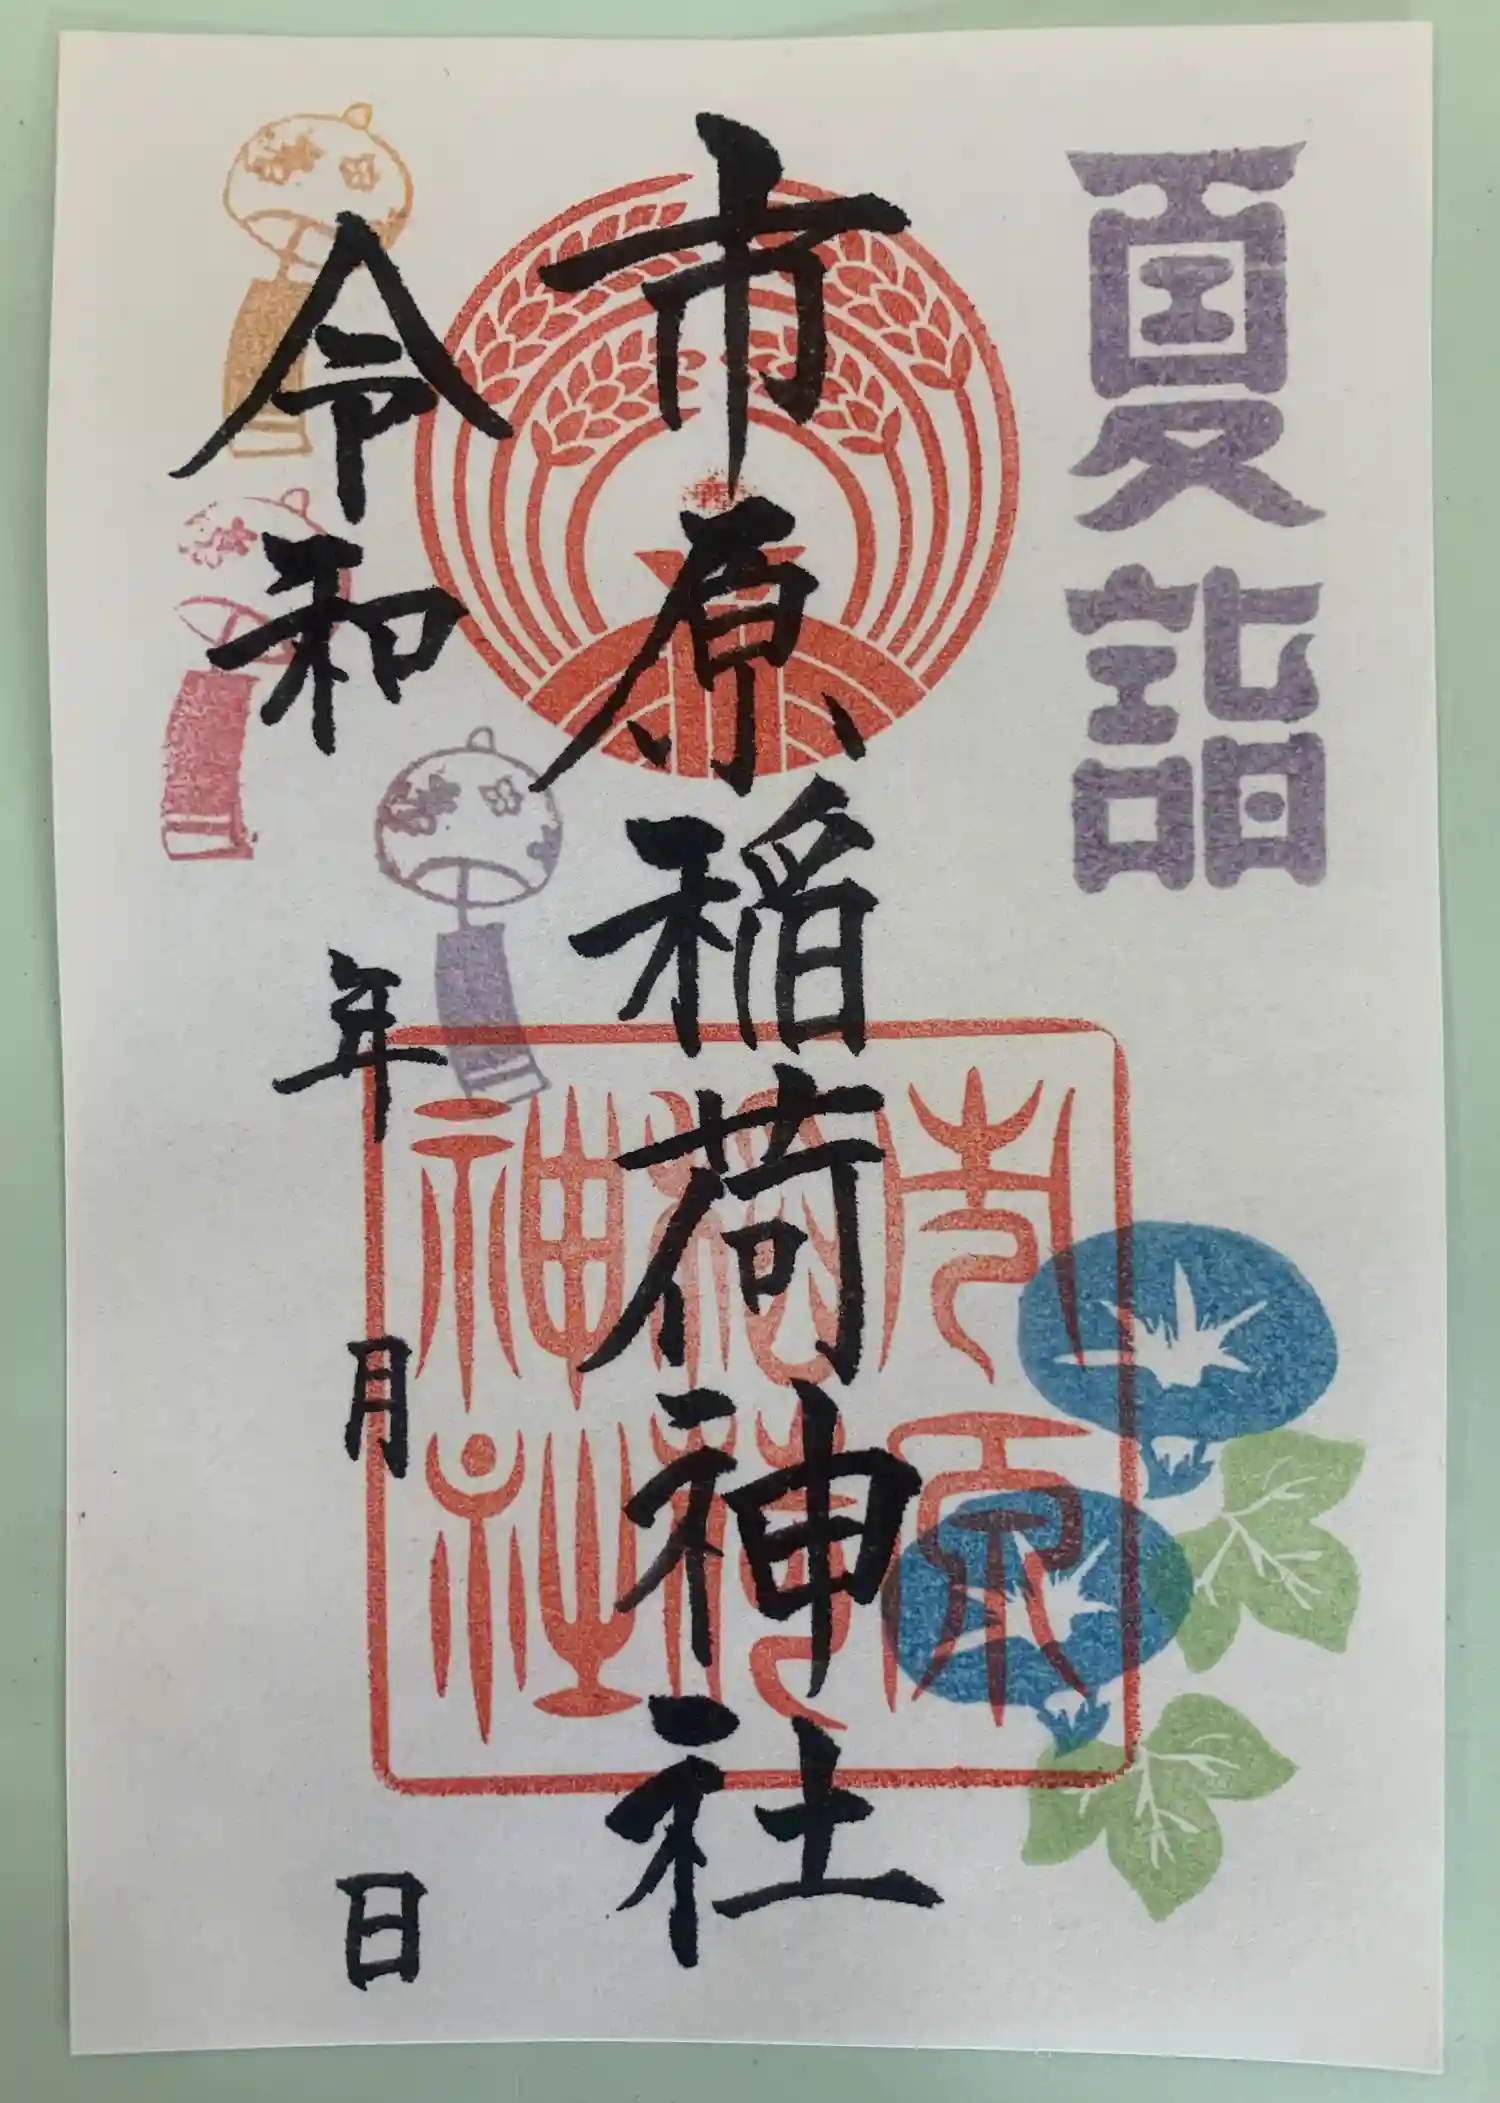 夏詣
市原稲荷神社
令和 年 月 日
市原
稲荷
神社